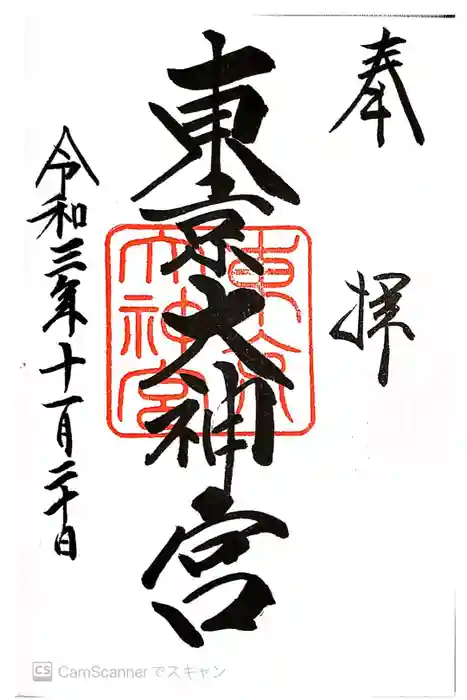 奉拝
東京大神宮
東京大神宮
令和三年十一月二十日
CS CamScannerでスキャン